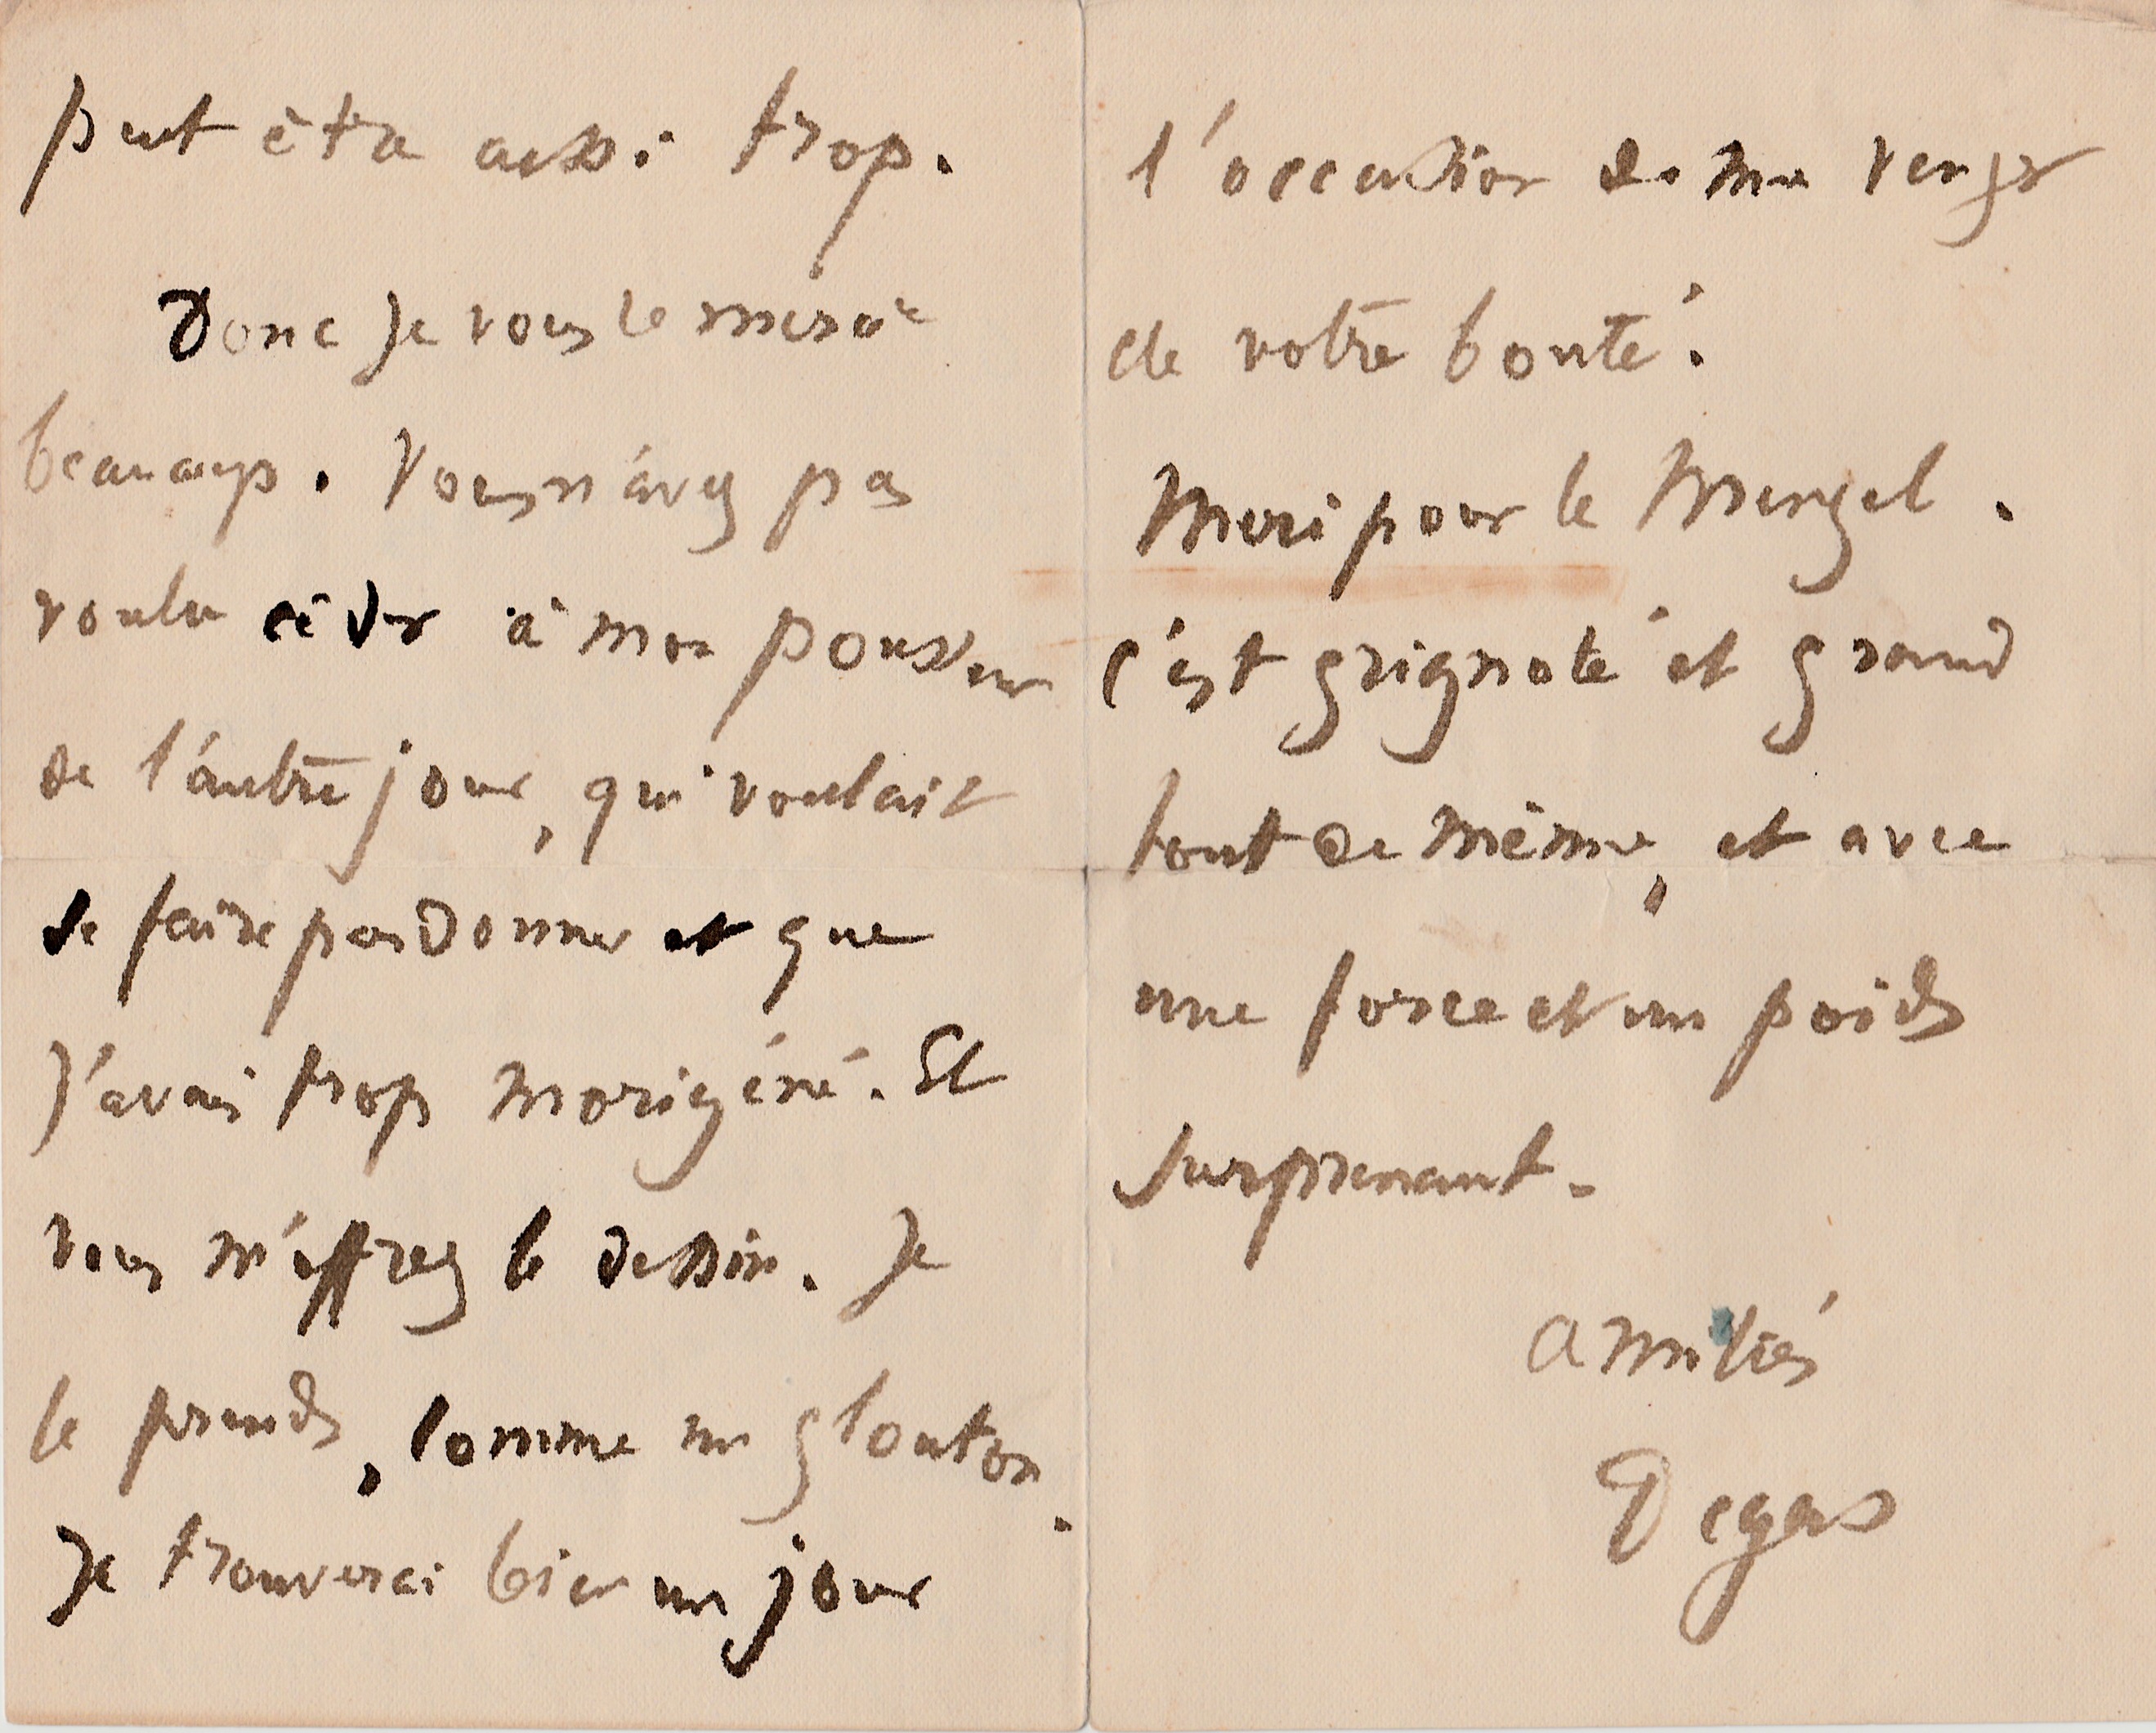 peut être aussi trop.
Donc je vous remercie
beaucoup. Vous n'avez pas
voulu céder à mon
de l'autre jour, qui voulait
se faire pardonner et que
j'avais trop morigéné. Et
vous m'offrez le dessin. Je
le prends, comme un glouton.
Je trouverai bien un jour
l'occasion de me venger
de votre bonté.
Merci pour le Menzel.
c'est grignoté et grand
tout de même, et avec
une force et un poids
surprenant.
amitiés
Degas